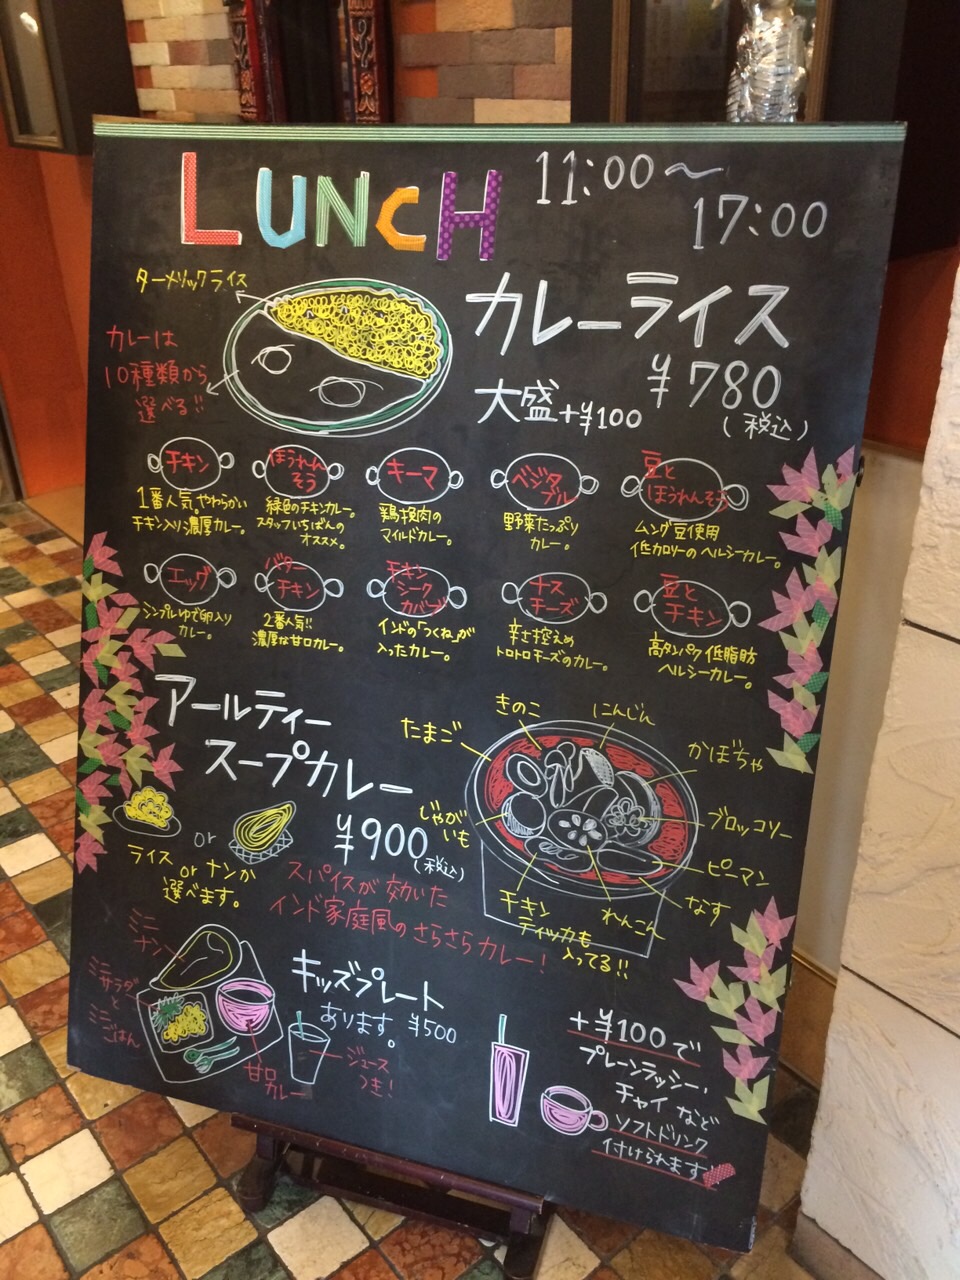 LUNCH
11:00〜
17:00
ターメリックライス
カレーは
10種類から
選べる!!
カレーライス
¥780
(税込)
大盛+¥100
チキン
1番人気。やわらかい
チキン入り濃厚カレー。
ほうれん
そう
緑色のチキンカレー。
スタッフいちばんの
オススメ。
キーマ
鶏挽肉の
マイルドカレー。
ベジタ
ブル
野菜たっぷり
カレー。
豆と
ほうれんそう
ムング豆使用
低カロリーのヘルシーカレー。
エッグ
シンプルゆで卵入り
カレー。
バター
チキン
2番人気!!
濃厚な甘口カレー。
チキン
シーク
カバーブ
インドの「つくね」が
入ったカレー。
ナス
チーズ
辛さ控えめ
トロトロチーズのカレー。
豆と
チキン
高タンパク低脂肪
ヘルシーカレー。
アールティー
スープカレー
¥900
(税込)
or
ライス
orナンが
選べます。
スパイスが効いた
インド家庭風のさらさらカレー!
たまご
きのこ
にんじん
かぼちゃ
ブロッコリー
ピーマン
なす
れんこん
じゃが
いも
チキン
ティッカも
入ってる!!
ミニ
ナン
ミニ
サラダ
と
ミニ
ごはん
甘口
カレー
キッズプレート
あります。¥500
ジュース
つき!
+¥100で
プレーンラッシー,
チャイなど
ソフトドリンク
付けられます!